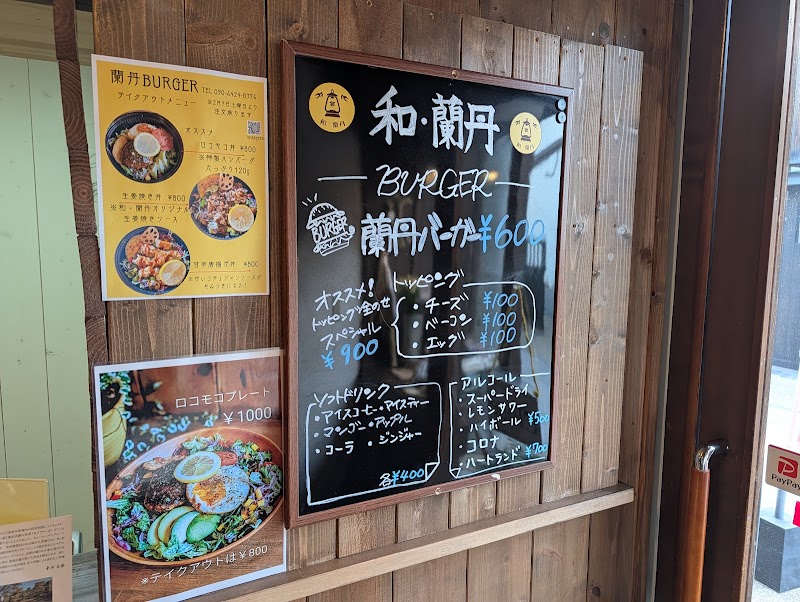 蘭丹BURGER
TEL 090-6424-8376
テイクアウトメニュー
※2月9日土曜日より
注文承ります
オススメ
ロコモコ丼 ¥800
※特製ハンバーグ
たっぷり120g
生姜焼き丼 ¥800
※和・蘭丹オリジナル
生姜焼きソース
甘辛唐揚げ丼 ¥800
ロコモコプレート
¥1000
※テイクアウトは¥800
和・蘭丹
和・蘭丹
和・蘭丹
BURGER
BURGER
蘭丹バーガー ¥600
オススメ!
トッピング全のせ
スペシャル
¥900
トッピング
・チーズ ¥100
・ベーコン ¥100
・エッグ ¥100
ソフトドリンク
・アイスコーヒー・アイスティー
・マンゴー・アップル
・コーラ ・ジンジャー
各¥400
アルコール
・スーパードライ
・レモンサワー
・ハイボール ¥500
・コロナ
・ハートランド ¥700
PayPay